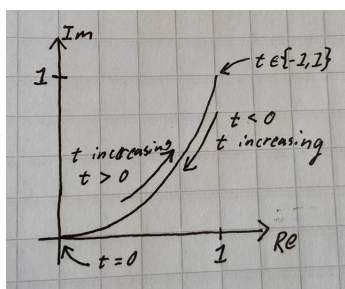 Im
t ∈ {-1,1}
1
t < 0
t increasing
t increasing
t > 0
1
Re
t = 0